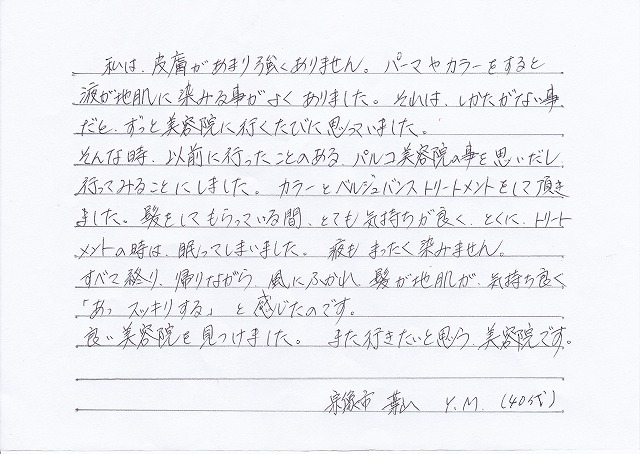 私は、皮膚があまり強くありません。パーマやカラーをすると
液が地肌に染みる事がよくありました。それは、しかたがない事
だと、ずっと美容院に行くたびに思っていました。
そんな時、以前に行ったことのある、パルコ美容院の事を思いだし、
行ってみることにしました。カラーとベルジュバンストリートメントをして頂き
ました。髪をしてもらっている間、とても気持ちが良く、とくに、トリート
メントの時は、眠ってしまいました。液もまったく染みません。
すべて終り、帰りながら、風にふかれ、髪が地肌が、気持ち良く
「あっスッキリする」と感じたのです。
良い美容院を見つけました。また行きたいと思う、美容院です。
宗像市 葉山 Y.M.(40代)